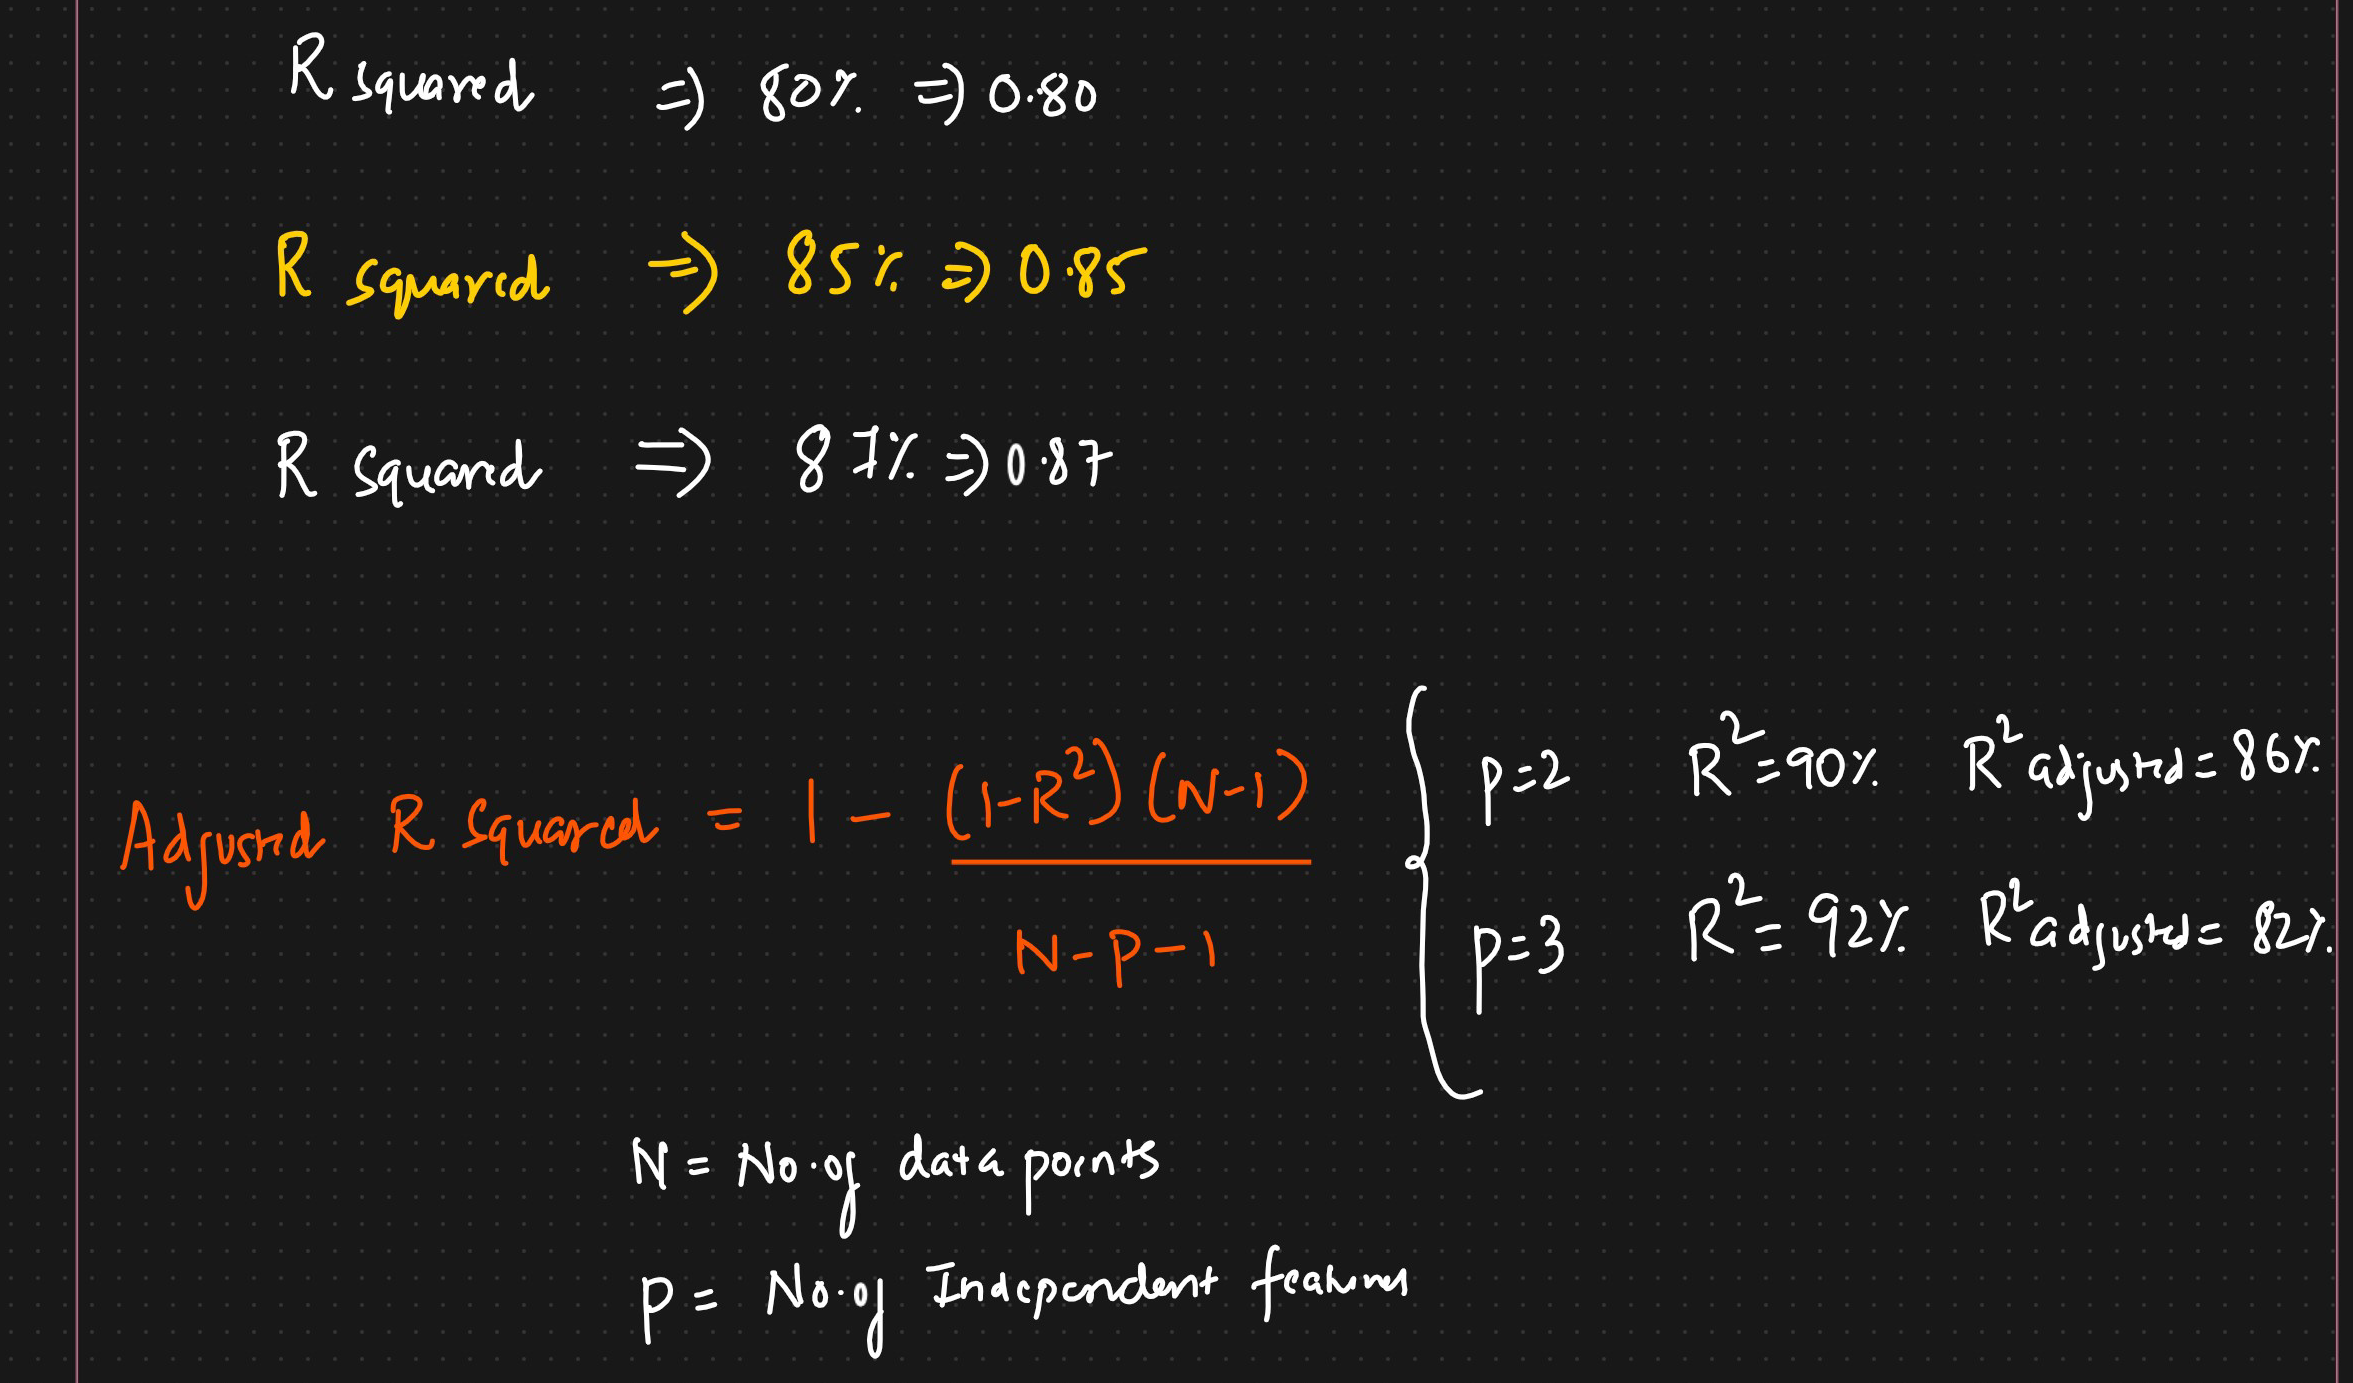 R squared ⇒ 80% ⇒ 0.80
R squared ⇒ 85% ⇒ 0.85
R squared ⇒ 87% ⇒ 0.87
Adjusted R Squared = 1 - (1-R²)(N-1) / N-P-1
P=2 R²=90% R² adjusted = 86%
P=3 R²= 92% R² adjusted = 82%
N = No. of data points
P = No. of Independent features